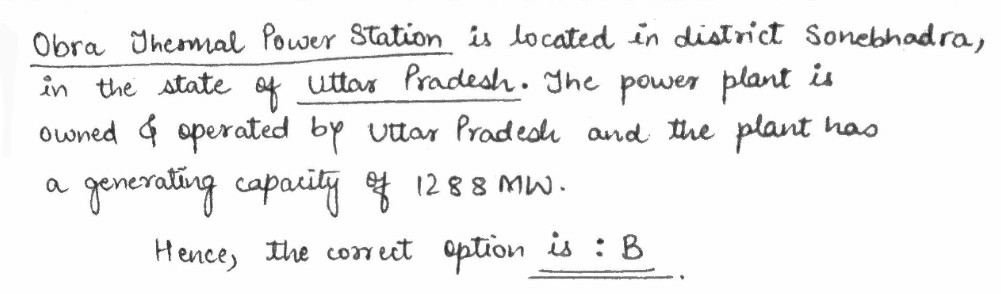 Obra Thermal Power Station is located in district Sonebhadra,
in the state of Uttar Pradesh. The power plant is
owned & operated by Uttar Pradesh and the plant has
a generating capacity of 1288 MW.
Hence, the correct option is : B.